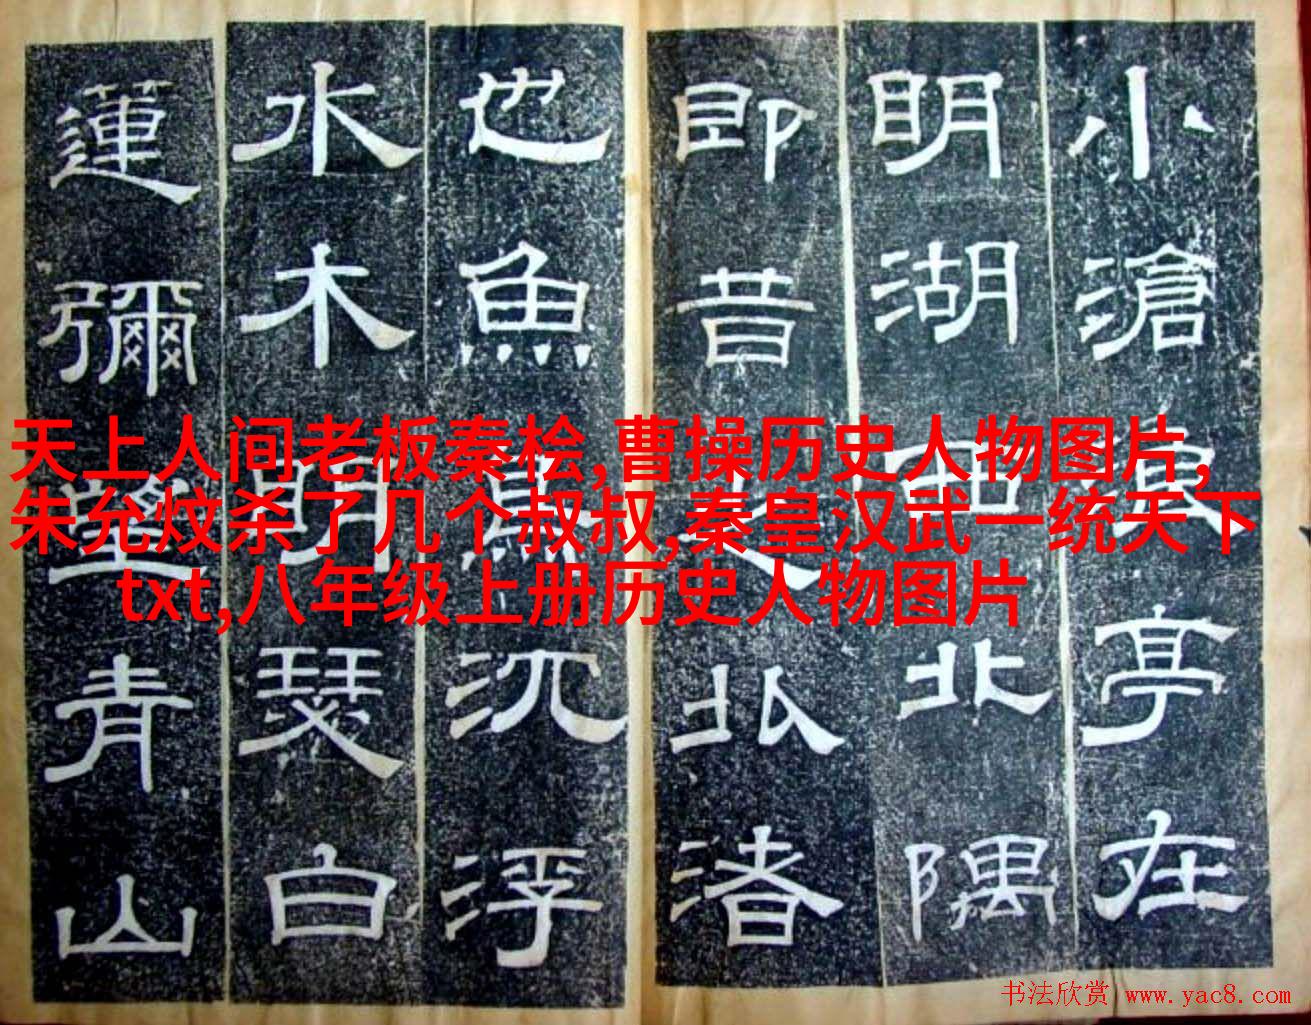 小滄浪亭在
明湖西北隅
即昔之北渚
也魚鳥沉浮
水木明瑟白
蓮彌望青山
天上人间老板秦桧,曹操历史人物图片,
朱允炆杀了几个叔叔,秦皇汉武一统天下
txt,八年级上册历史人物图片
书法欣赏 www.yac8.com